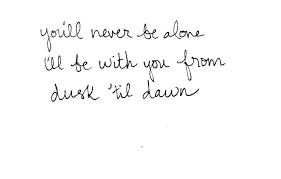 you'll never be alone
i'll be with you from
dusk 'til dawn